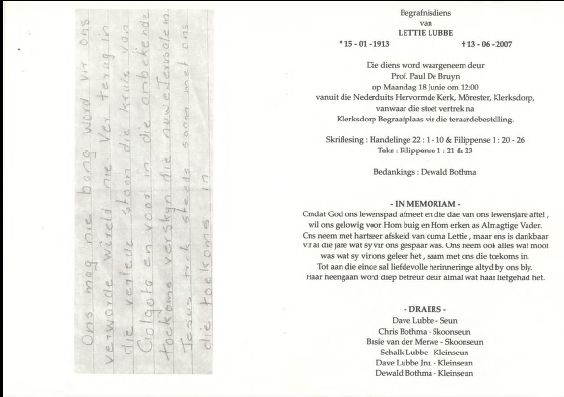 Ons mag nie bang word vir ons
verwarde wêreld nie. Ver terug in
die verlede staan die kruis van
Golgota en voor in die onbekende
toekoms verskyn die nuwe Jerusalem.
Jesus trek steeds saam met ons
die toekoms in
Begrafnisdiens
van
LETTIE LUBBE
* 15 - 01 - 1913 † 13 - 06 - 2007
Die diens word waargeneem deur
Prof. Paul De Bruyn
op Maandag 18 Junie om 12:00
vanuit die Nederduits Hervormde Kerk, Môrester, Klerksdorp,
vanwaar die stoet vertrek na
Klerksdorp Begraafplaas vir die teraardebestelling.
Skriflesing : Handelinge 22 : 1 - 10 & Filippense 1 : 20 - 26
Teks : Filippense 1 : 21 & 23
Bedankings : Dewald Bothma
- IN MEMORIAM -
Omdat God ons lewenspad afmeet en die dae van ons lewensjare aftel ,
wil ons gelowig voor Hom buig en Hom erken as Almagtige Vader.
Ons neem met hartseer afskeid van ouma Lettie , maar ons is dankbaar
vir al die jare wat sy vir ons gespaar was. Ons neem ook alles wat mooi
was wat sy vir ons geleer het , saam met ons die toekoms in.
Tot aan die einde sal liefdevolle herinneringe altyd by ons bly.
Haar heengaan word diep betreur deur almal wat haar liefgehad het.
- DRAERS -
Dave Lubbe - Seun
Chris Bothma - Skoonseun
Basie van der Merwe - Skoonseun
Schalk Lubbe - Kleinseun
Dave Lubbe Jnr. - Kleinseun
Dewald Bothma - Kleinseun